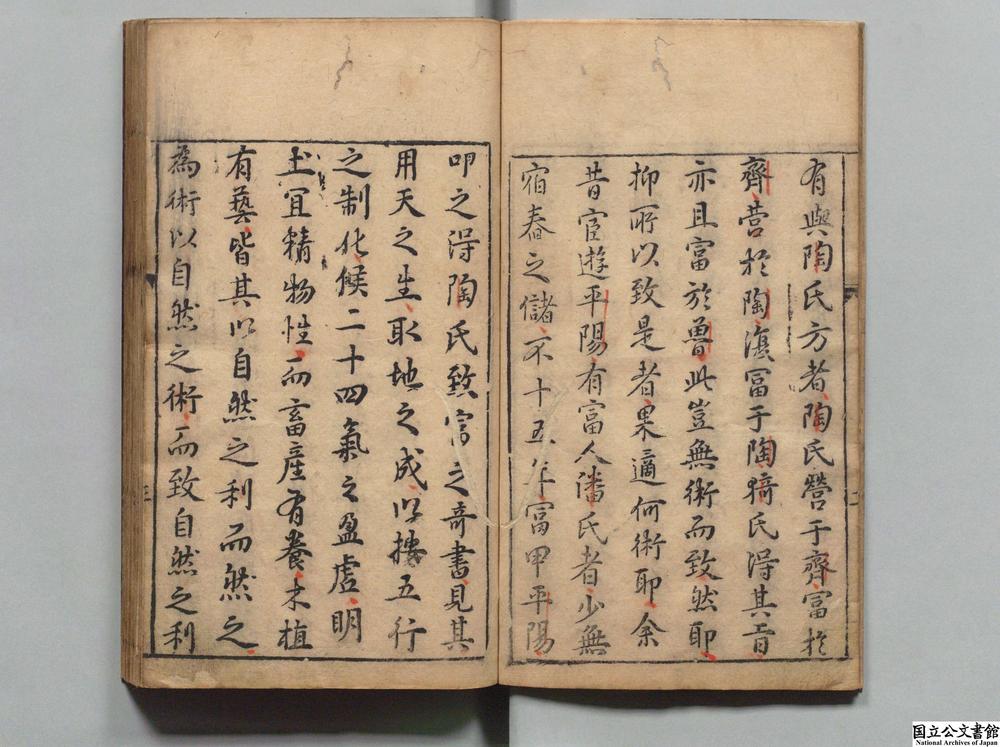 有與陶氏方者陶氏營于齊富於
齊營於陶滇富于陶猗氏淂其旨
亦且富於魯此豈無術而致然耶
抑所以致是者果適何術耶余
昔宦遊平陽有富人潘氏者少無
宿舂之儲不十五年富甲平陽
叩之淂陶氏致富之奇書見其
用天之生取地之成以摟五行
之制化候二十四氣之盈虛明
土宜精物性而畜產有養木植
有藝皆其以自然之利而然之
為術以自然之術而致自然之利
二
三
国立公文書館
National Archives of Japan